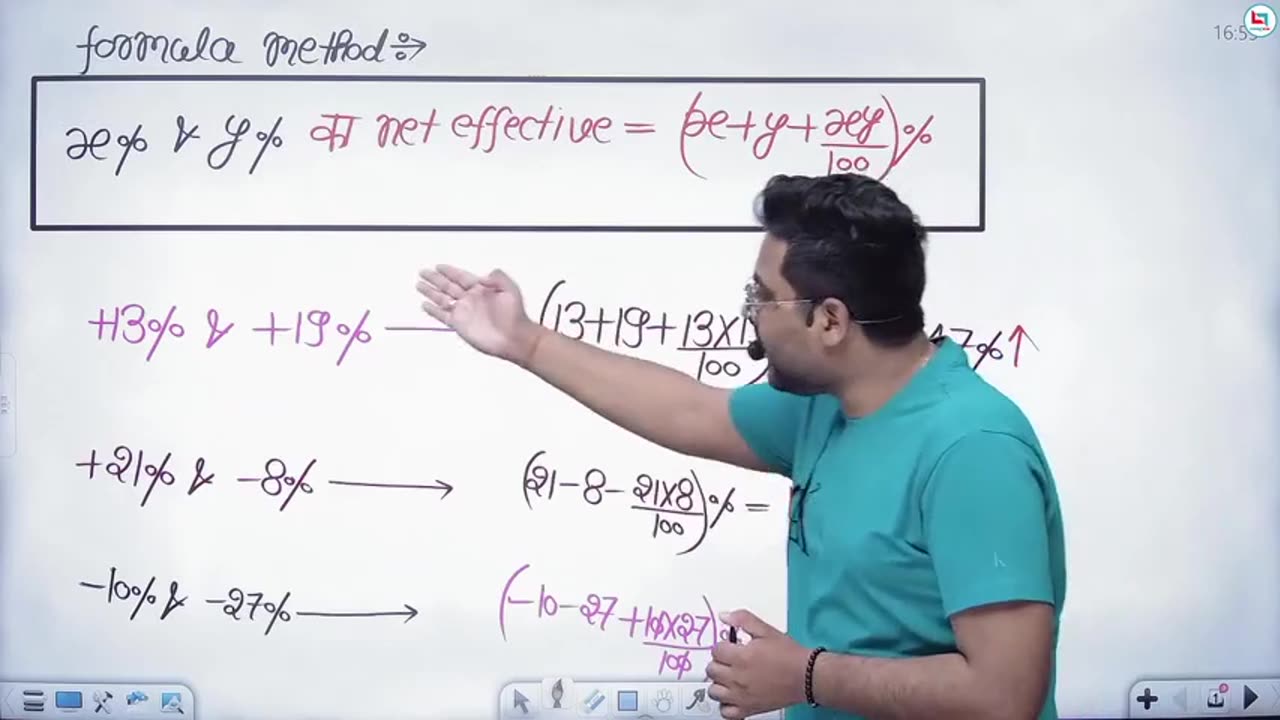 formula method ÷→
x% & y% का net effective = (x+y+xy/100)%
16:5
+13% & +19% — (13+19+13×1/100 47%↑
+21% & -8% → (21-8-21×8/100)% =
-10% & -27% → (-10-27+10×27/100)